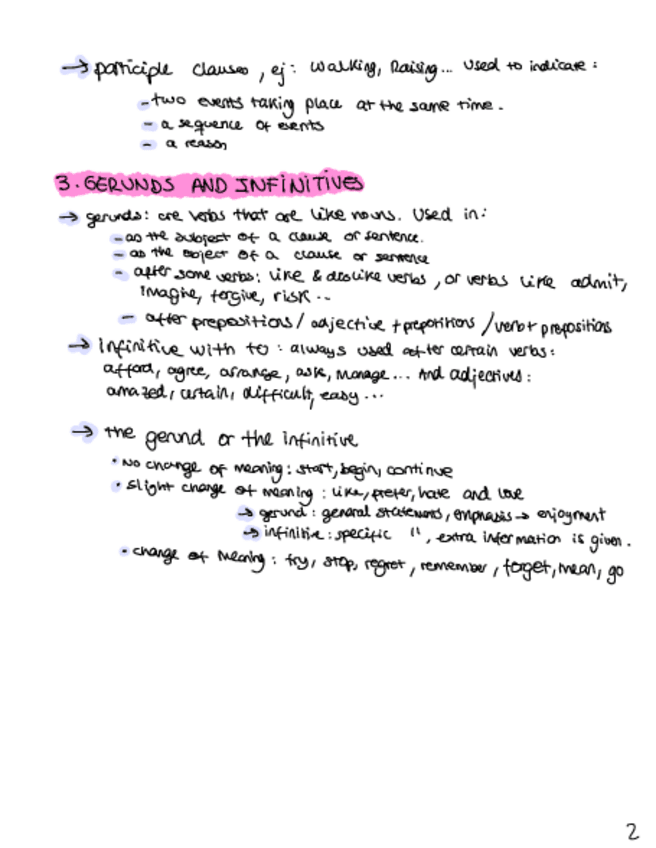 → participle clauses, ej: Walking, Raising... Used to indicate:
- two events taking place at the same time.
- a sequence of events
- a reason
3. GERUNDS AND INFINITIVES
→ gerunds: are verbs that are like nouns. Used in:
- as the subject of a clause or sentence.
- as the object of a clause or sentence
- after some verbs: like & dislike verbs, or verbs like admit,
imagine, forgive, risk...
- after prepositions / adjective + prepositions / verb + prepositions
→ infinitive with to: always used after certain verbs:
afford, agree, arrange, ask, manage... And adjectives:
amazed, certain, difficult, easy...
→ the gerund or the infinitive
• No change of meaning: start, begin, continue
• slight change of meaning: like, prefer, hate and love
→ gerund: general statements, emphasis → enjoyment
→ infinitive: specific '' , extra information is given.
• change of meaning: try, stop, regret, remember, forget, mean, go
2